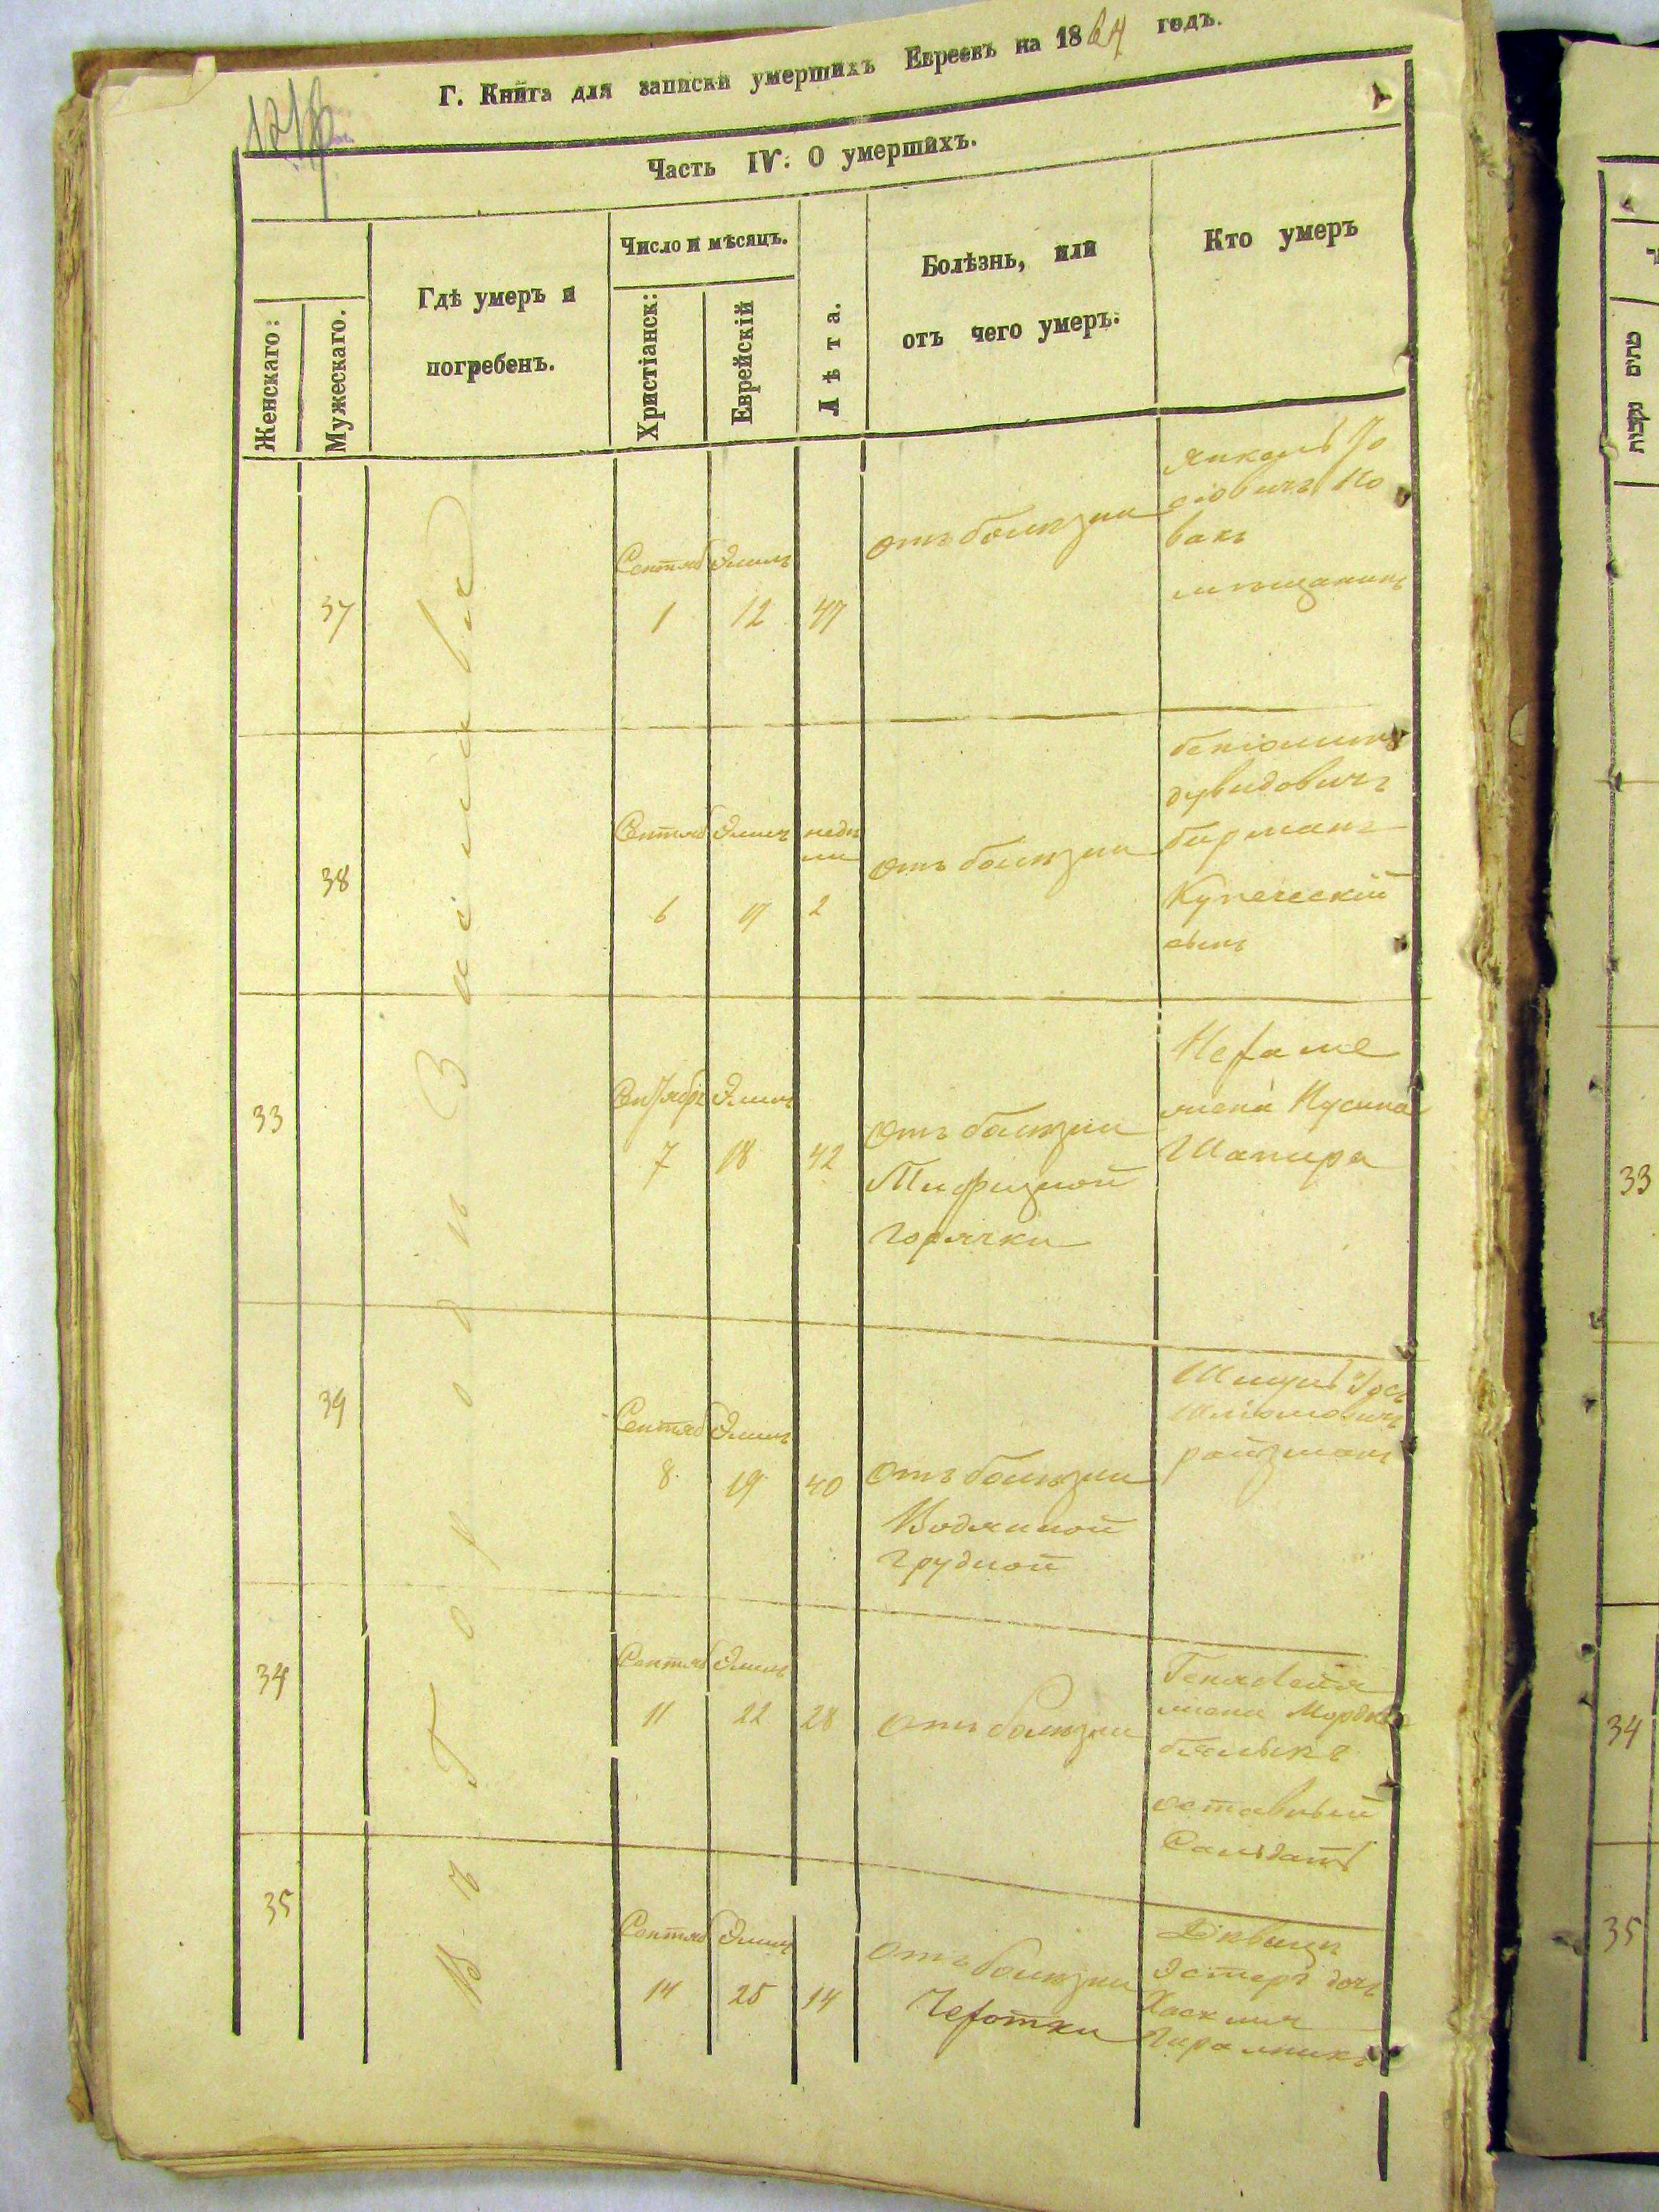 Г. Книга для записки умершихъ Евреевъ на 1864 годъ.
Часть IV. О умершихъ.
Женскаго:
Мужескаго.
Гдѣ умеръ и
погребенъ.
Число и мѣсяцъ.
Христіанск:
Еврейскій
Лѣта.
Болѣзнь, или
отъ чего умеръ:
Кто умеръ
Въ Городѣ
37
Сентяб Элиль
1 12 47
отъ болѣзни
Янкель Іо
сіовичъ Но
вакъ
мѣщанинъ
38
Сентяб Элиль недѣ
ли
6 17 2
отъ болѣзни
беніоминъ
дувидовичъ
бирманъ
Купеческій
сынъ
33
Сентябрь Элиль
7 18 42
отъ болѣзни
Тифизной
горячки
Нехаме
жена Нусина
Шапира
39
Сентяб Элиль
8 19 40
отъ болѣзни
Водяной
грудной
Іось
Шліомовичъ
ройзманъ
34
Сентяб Элиль
11 22 28
отъ болѣзни
Геня Лейя
жена Мордко
бялыкъ
оставный
Салдатъ
35
Сентяб Элиль
14 25 14
отъ болѣзни
Чехотки
Дѣвица
Эстеръ дочь
Хаскиля
פטרים נקבות
33
34
35